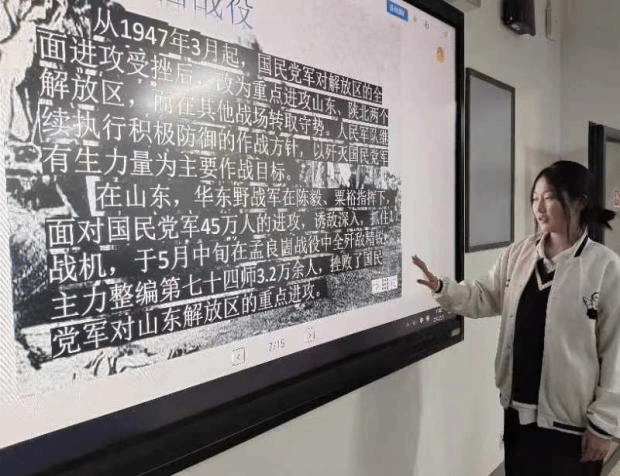 崮战役
从1947年3月起，国民党军对解放区的全
面进攻受挫后，改为重点进攻山东、陕北两个
解放区，而在其他战场转取守势。人民军队继
续执行积极防御的作战方针，以歼灭国民党军
有生力量为主要作战目标。
在山东，华东野战军在陈毅、粟裕指挥下，
面对国民党军45万人的进攻，诱敌深入，抓住
战机，于5月中旬在孟良崮战役中全歼敌精锐
主力整编第七十四师3.2万余人，挫败了国民
党军对山东解放区的重点进攻。
7/15